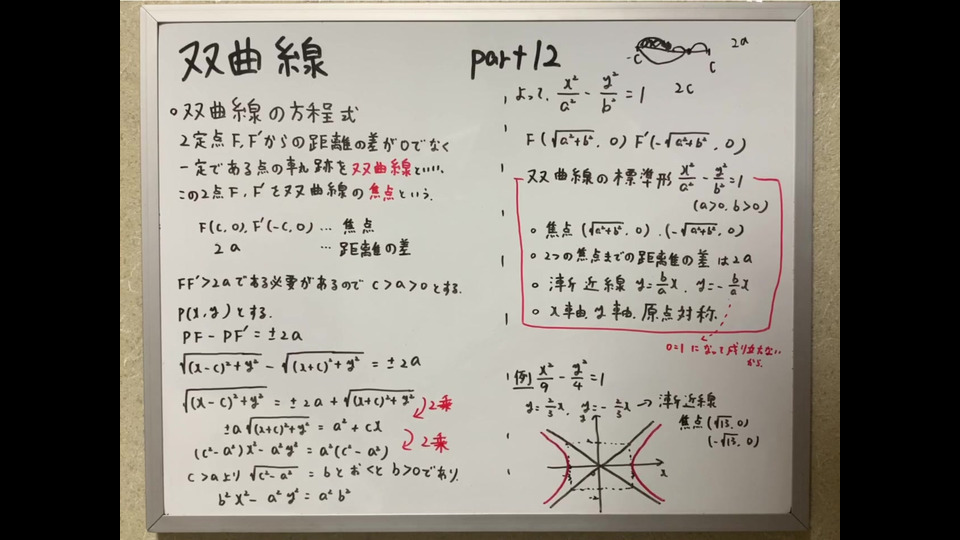 双曲線
part 12
○双曲線の方程式
2定点F, F'からの距離の差が0でなく
一定である点の軌跡を双曲線といい、
この2点F, F'を双曲線の焦点という。
F(c, 0), F'(-c, 0) … 焦点
2a … 距離の差
FF'>2aである必要があるので c>a>0とする.
P(x, y)とする.
PF - PF' = ±2a
√((x-c)²+y²) - √((x+c)²+y²) = ±2a
√((x-c)²+y²) = ±2a + √((x+c)²+y²)
2乗
±a√((x+c)²+y²) = a²+cx
2乗
(c²-a²)x² - a²y² = a²(c²-a²)
c>aより √(c²-a²) = b とおくと b>0であり.
b²x² - a²y² = a²b²
-c
c
2a
2c
よって、x²/a² - y²/b² = 1
F(√(a²+b²), 0) F'(-√(a²+b²), 0)
双曲線の標準形 x²/a² - y²/b² = 1
(a>0, b>0)
○ 焦点 (√(a²+b²), 0), (-√(a²+b²), 0)
○ 2つの焦点までの距離の差は2a
○ 漸近線 y=b/a x, y=-b/a x
○ x軸, y軸, 原点対称.
0=1になって成り立たないから.
例 x²/9 - y²/4 = 1
y=2/3x, y=-2/3x → 漸近線
焦点(√13, 0)
(-√13, 0)
2
x
-2